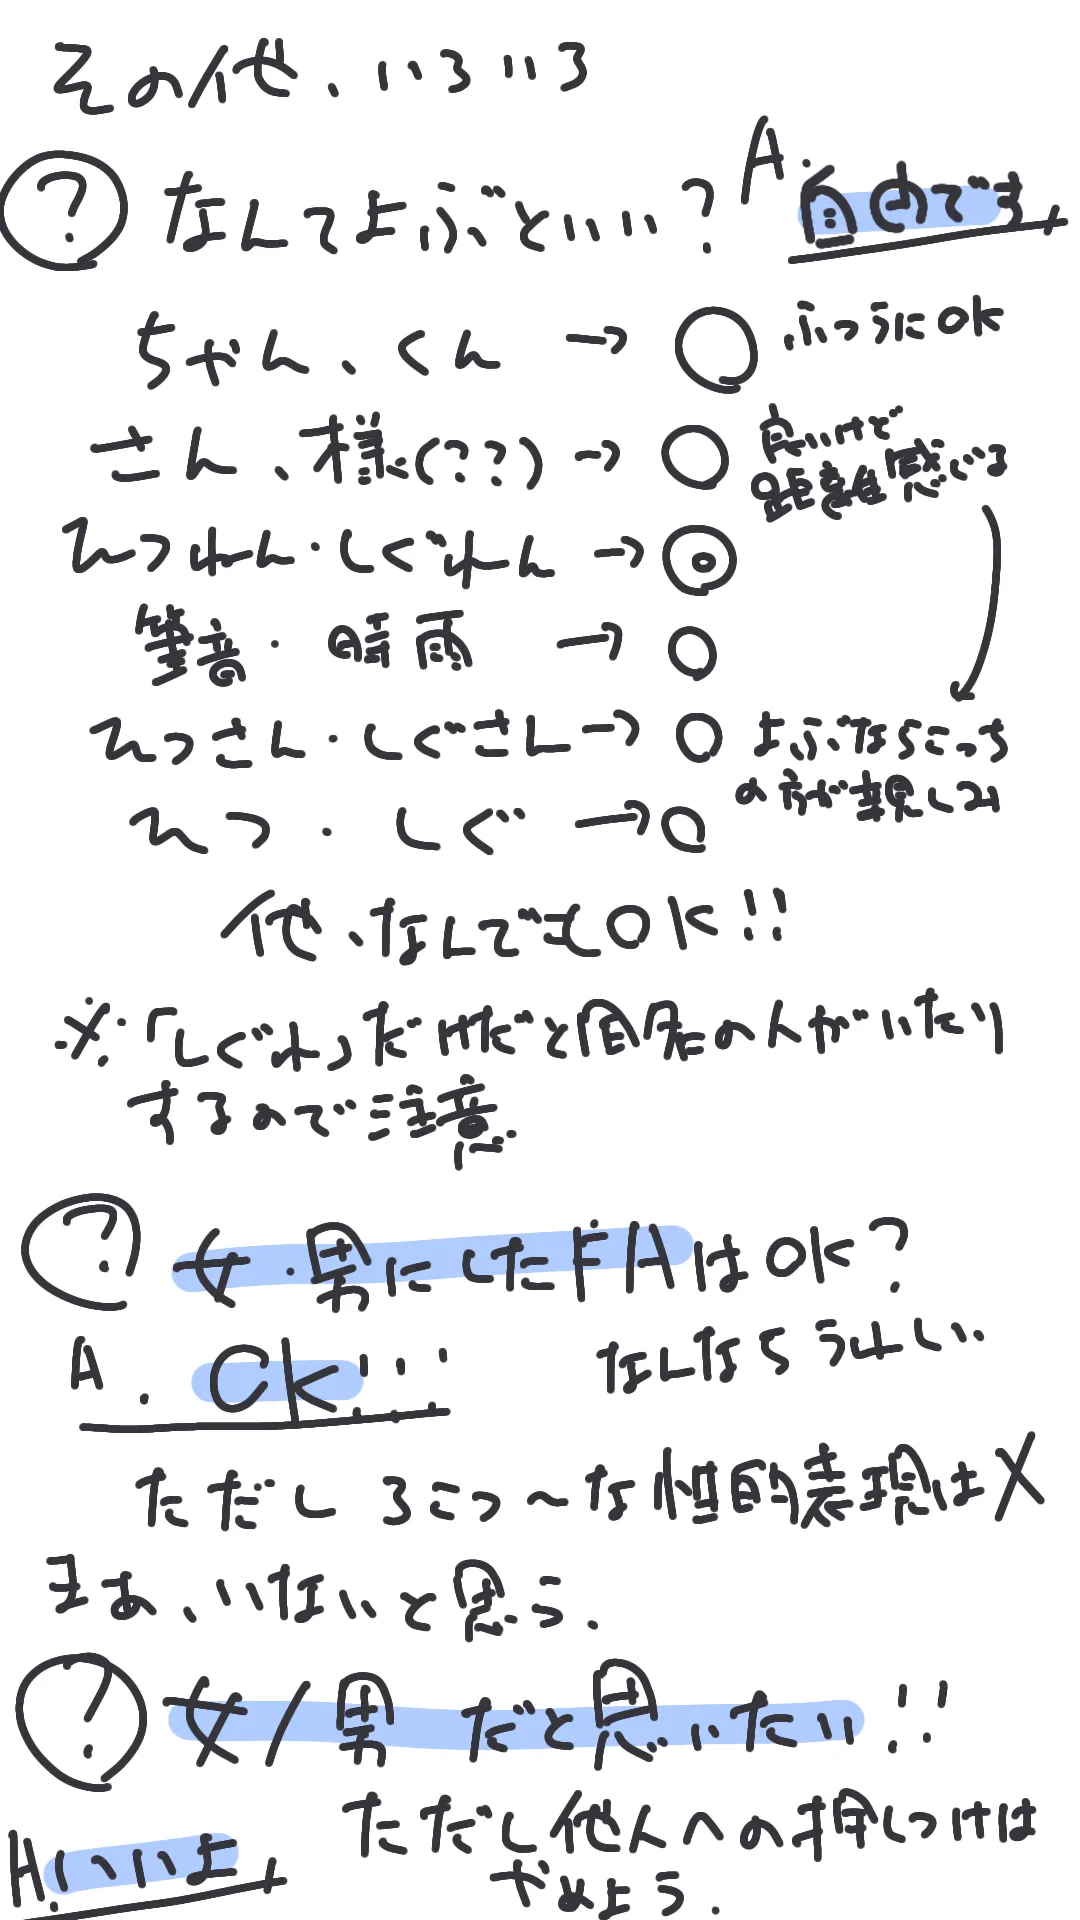 その他、いろいろ
? なんてよぶといい? A. 自由です
ちゃん、くん → ○ ふつうにOK
さん、様(??) → ○ 良いけど
距離感じる
ひつねん・しぐれん → ◎
筆音・時雨 → ○
ひっさん・しぐさん → ○ よぶならこっち
の方が親しみ
ひつ・しぐ → ○
他、なんでもOK!!
※「しぐれ」だけだと同名の人がいたり
するので注意
? 女・男にしたFAはOK?
A. OK!!! なんならうれしい
ただしろこつ~な性的表現は×
まぁ、いないと思う.
? 女/男だと思いたい!!
A. いいよ ただし他人への押しつけは
やめよう.